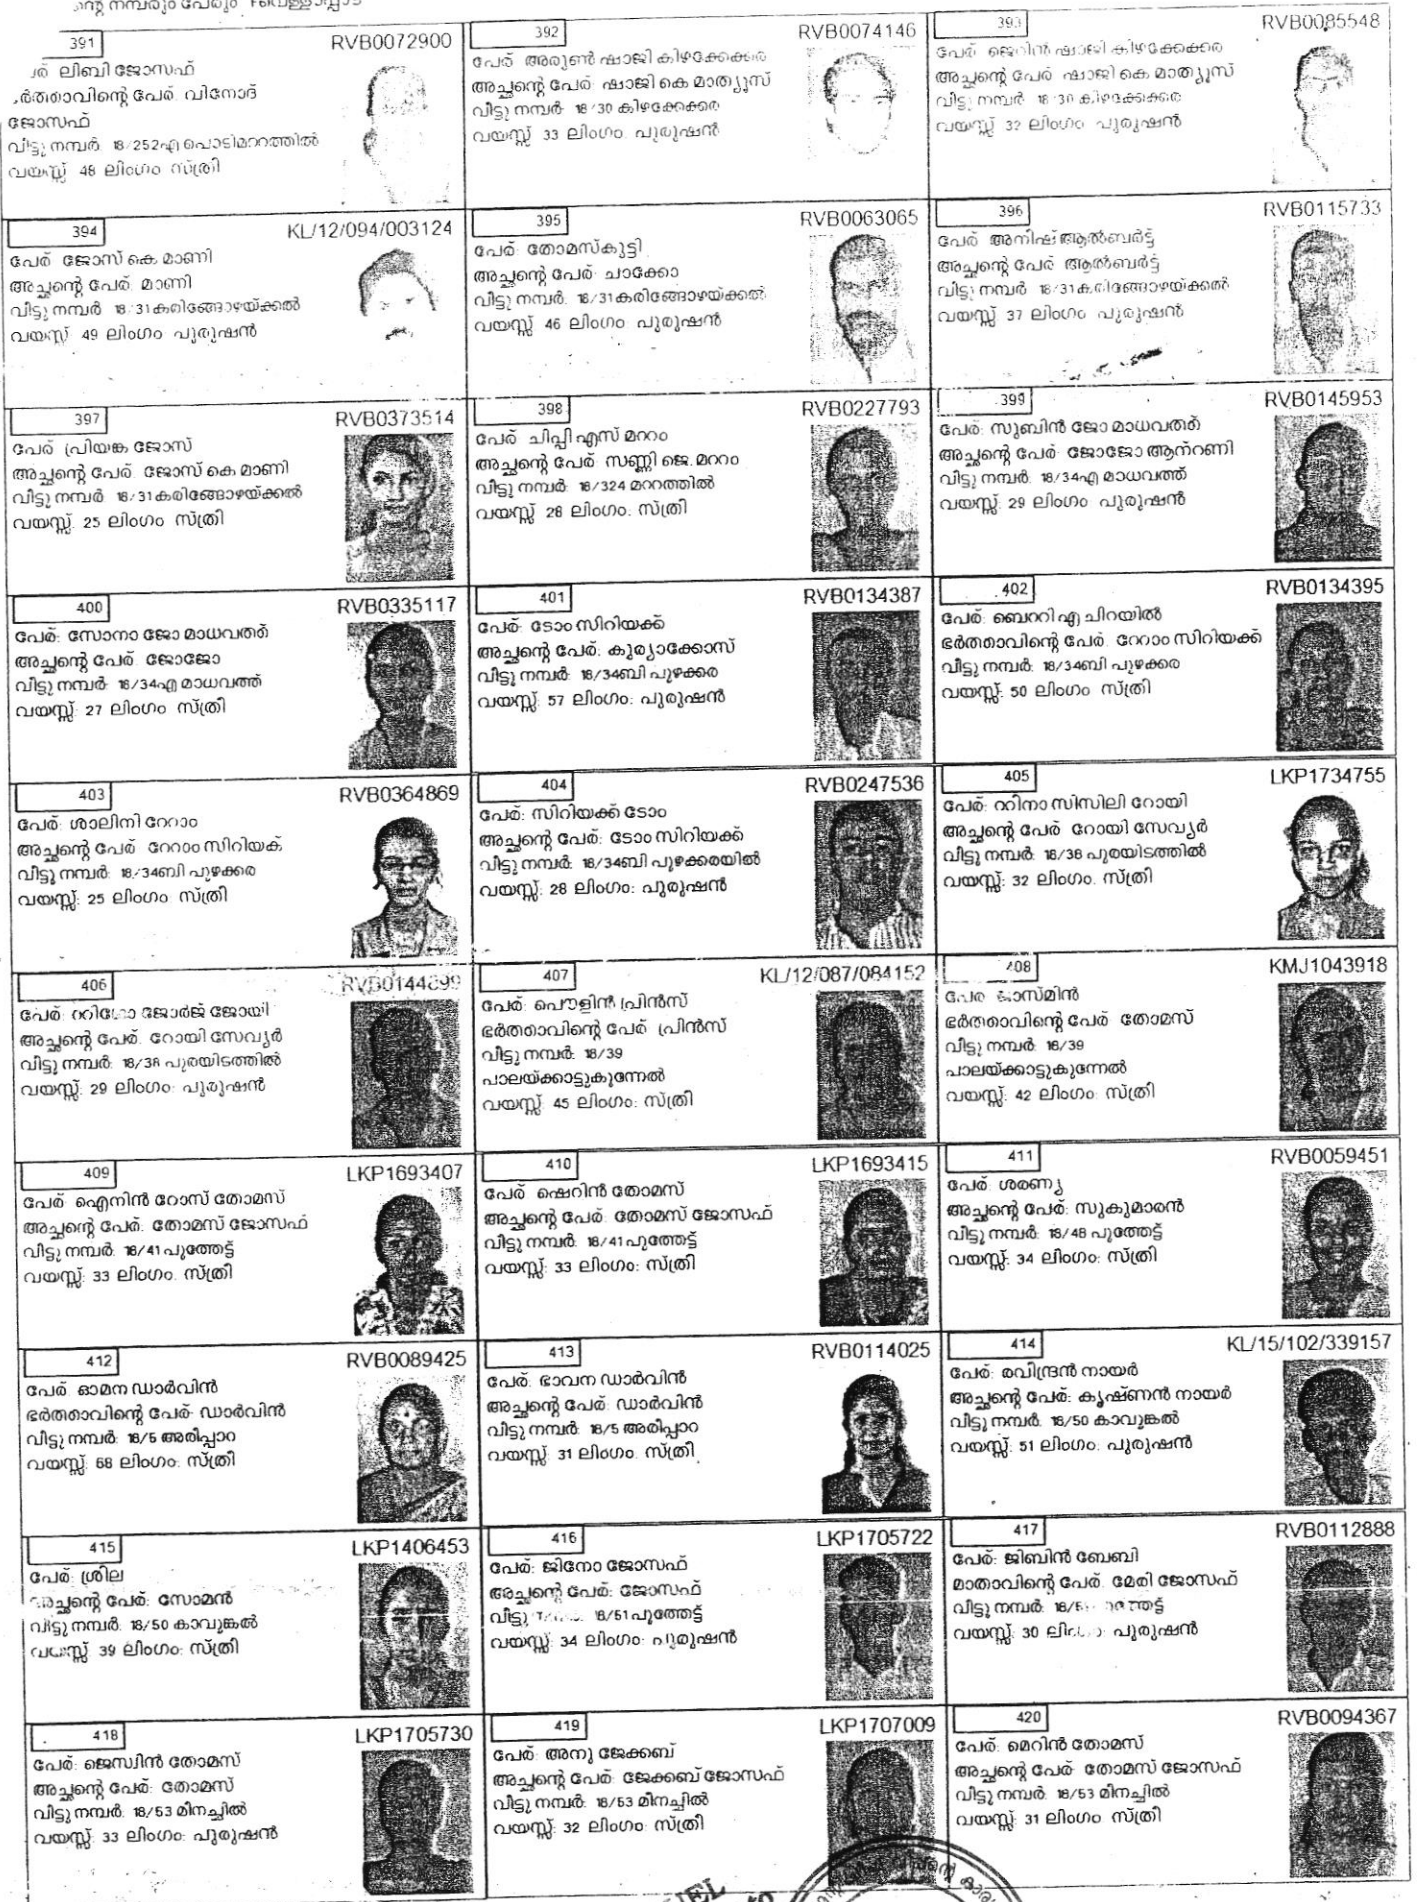 നമ്പരും പേരും
391 RVB0072900
ലിബി ജോസഫ്
പേര്: വിനോദ്
ജോസഫ്
വീട്ടു നമ്പർ: 18/252എ പൊടിമററത്തിൽ
വയസ്സ്: 48 ലിംഗം: സ്ത്രി
392 RVB0074146
പേര്: അരുൺ ഷാജി കിഴക്കേക്കര
അച്ഛന്റെ പേര്: ഷാജി കെ മാത്യൂസ്
വീട്ടു നമ്പർ: 18/30 കിഴക്കേക്കര
വയസ്സ്: 33 ലിംഗം: പുരുഷൻ
393 RVB0085548
പേര്: ജെറിൻ ഷാജി കിഴക്കേക്കര
അച്ഛന്റെ പേര്: ഷാജി കെ മാത്യൂസ്
വീട്ടു നമ്പർ: 18/30 കിഴക്കേക്കര
വയസ്സ്: 32 ലിംഗം: പുരുഷൻ
394 KL/12/094/003124
പേര്: ജോസ് കെ മാണി
അച്ഛന്റെ പേര്: മാണി
വീട്ടു നമ്പർ: 18/31കരിങ്ങോഴയ്ക്കൽ
വയസ്സ്: 49 ലിംഗം: പുരുഷൻ
395 RVB0063065
പേര്: തോമസ്കുട്ടി
അച്ഛന്റെ പേര്: ചാക്കോ
വീട്ടു നമ്പർ: 18/31കരിങ്ങോഴയ്ക്കൽ
വയസ്സ്: 46 ലിംഗം: പുരുഷൻ
396 RVB0115733
പേര്: അനീഷ് ആൽബർട്ട്
അച്ഛന്റെ പേര്: ആൽബർട്ട്
വീട്ടു നമ്പർ: 18/31കരിങ്ങോഴയ്ക്കൽ
വയസ്സ്: 37 ലിംഗം: പുരുഷൻ
397 RVB0373514
പേര്: പ്രിയങ്ക ജോസ്
അച്ഛന്റെ പേര്: ജോസ് കെ മാണി
വീട്ടു നമ്പർ: 18/31കരിങ്ങോഴയ്ക്കൽ
വയസ്സ്: 25 ലിംഗം: സ്ത്രി
398 RVB0227793
പേര്: ചിപ്പി എസ് മററം
അച്ഛന്റെ പേര്: സണ്ണി ജെ.മററം
വീട്ടു നമ്പർ: 18/324 മററത്തിൽ
വയസ്സ്: 28 ലിംഗം: സ്ത്രി
399 RVB0145953
പേര്: സുബിൻ ജോ മാധവത്ത്
അച്ഛന്റെ പേര്: ജോജോ ആന്റണി
വീട്ടു നമ്പർ: 18/34എ മാധവത്ത്
വയസ്സ്: 29 ലിംഗം: പുരുഷൻ
400 RVB0335117
പേര്: സോനാ ജോ മാധവത്ത്
അച്ഛന്റെ പേര്: ജോജോ
വീട്ടു നമ്പർ: 18/34എ മാധവത്ത്
വയസ്സ്: 27 ലിംഗം: സ്ത്രി
401 RVB0134387
പേര്: ടോം സിറിയക്ക്
അച്ഛന്റെ പേര്: കുര്യാക്കോസ്
വീട്ടു നമ്പർ: 18/34ബി പുഴക്കര
വയസ്സ്: 57 ലിംഗം: പുരുഷൻ
402 RVB0134395
പേര്: ബെററി എ ചിറയിൽ
ഭർത്താവിന്റെ പേര്: റേറാം സിറിയക്ക്
വീട്ടു നമ്പർ: 18/34ബി പുഴക്കര
വയസ്സ്: 50 ലിംഗം: സ്ത്രി
403 RVB0364869
പേര്: ശാലിനി റേറാം
അച്ഛന്റെ പേര്: റേറാം സിറിയക്
വീട്ടു നമ്പർ: 18/34ബി പുഴക്കര
വയസ്സ്: 25 ലിംഗം: സ്ത്രി
404 RVB0247536
പേര്: സിറിയക്ക് ടോം
അച്ഛന്റെ പേര്: ടോം സിറിയക്ക്
വീട്ടു നമ്പർ: 18/34ബി പുഴക്കരയിൽ
വയസ്സ്: 28 ലിംഗം: പുരുഷൻ
405 LKP1734755
പേര്: ററിനാ സിസിലി റോയി
അച്ഛന്റെ പേര്: റോയി സേവ്യർ
വീട്ടു നമ്പർ: 18/38 പുരയിടത്തിൽ
വയസ്സ്: 32 ലിംഗം: സ്ത്രി
406 RVB0144899
പേര്: ജോർജ് ജോയി
അച്ഛന്റെ പേര്: റോയി സേവ്യർ
വീട്ടു നമ്പർ: 18/38 പുരയിടത്തിൽ
വയസ്സ്: 29 ലിംഗം: പുരുഷൻ
407 KL/12/087/084152
പേര്: പൌളിൻ പ്രിൻസ്
ഭർത്താവിന്റെ പേര്: പ്രിൻസ്
വീട്ടു നമ്പർ: 18/39
പാലയ്ക്കാട്ടുകുന്നേൽ
വയസ്സ്: 45 ലിംഗം: സ്ത്രി
408 KMJ1043918
പേര്: ജാസ്മിൻ
ഭർത്താവിന്റെ പേര്: തോമസ്
വീട്ടു നമ്പർ: 18/39
പാലയ്ക്കാട്ടുകുന്നേൽ
വയസ്സ്: 42 ലിംഗം: സ്ത്രി
409 LKP1693407
പേര്: ഐനിൻ റോസ് തോമസ്
അച്ഛന്റെ പേര്: തോമസ് ജോസഫ്
വീട്ടു നമ്പർ: 18/41പുത്തേട്ട്
വയസ്സ്: 33 ലിംഗം: സ്ത്രി
410 LKP1693415
പേര്: ഷെറിൻ തോമസ്
അച്ഛന്റെ പേര്: തോമസ് ജോസഫ്
വീട്ടു നമ്പർ: 18/41പുത്തേട്ട്
വയസ്സ്: 33 ലിംഗം: സ്ത്രി
411 RVB0059451
പേര്: ശരണ്യ
അച്ഛന്റെ പേര്: സുകുമാരൻ
വീട്ടു നമ്പർ: 18/48 പുത്തേട്ട്
വയസ്സ്: 34 ലിംഗം: സ്ത്രി
412 RVB0089425
പേര്: ഓമന ഡാർവിൻ
ഭർത്താവിന്റെ പേര്: ഡാർവിൻ
വീട്ടു നമ്പർ: 18/5 അരീപ്പാറ
വയസ്സ്: 68 ലിംഗം: സ്ത്രി
413 RVB0114025
പേര്: ഭാവന ഡാർവിൻ
അച്ഛന്റെ പേര്: ഡാർവിൻ
വീട്ടു നമ്പർ: 18/5 അരീപ്പാറ
വയസ്സ്: 31 ലിംഗം: സ്ത്രി
414 KL/15/102/339157
പേര്: രവീന്ദ്രൻ നായർ
അച്ഛന്റെ പേര്: കൃഷ്ണൻ നായർ
വീട്ടു നമ്പർ: 18/50 കാവുങ്കൽ
വയസ്സ്: 51 ലിംഗം: പുരുഷൻ
415 LKP1406453
പേര്: ശ്രീല
അച്ഛന്റെ പേര്: സോമൻ
വീട്ടു നമ്പർ: 18/50 കാവുങ്കൽ
വയസ്സ്: 39 ലിംഗം: സ്ത്രി
416 LKP1705722
പേര്: ജിനോ ജോസഫ്
അച്ഛന്റെ പേര്: ജോസഫ്
വീട്ടു 18/51പുത്തേട്ട്
വയസ്സ്: 34 ലിംഗം: പുരുഷൻ
417 RVB0112888
പേര്: ജിബിൻ ബേബി
മാതാവിന്റെ പേര്: മേരി ജോസഫ്
വീട്ടു നമ്പർ:
വയസ്സ്: 30 ലിംഗം: പുരുഷൻ
418 LKP1705730
പേര്: ജെസ്വിൻ തോമസ്
അച്ഛന്റെ പേര്: തോമസ്
വീട്ടു നമ്പർ: 18/53 മീനച്ചിൽ
വയസ്സ്: 33 ലിംഗം: പുരുഷൻ
419 LKP1707009
പേര്: അനു ജേക്കബ്
അച്ഛന്റെ പേര്: ജേക്കബ് ജോസഫ്
വീട്ടു നമ്പർ: 18/53 മീനച്ചിൽ
വയസ്സ്: 32 ലിംഗം: സ്ത്രി
420 RVB0094367
പേര്: മെറിൻ തോമസ്
അച്ഛന്റെ പേര്: തോമസ് ജോസഫ്
വീട്ടു നമ്പർ: 18/53 മീനച്ചിൽ
വയസ്സ്: 31 ലിംഗം: സ്ത്രി